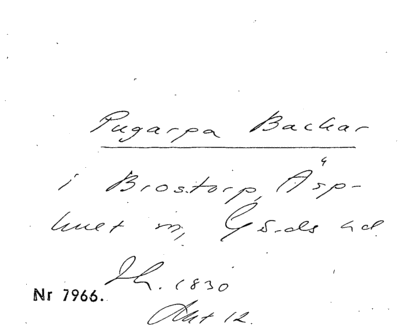 Pugarpa Backar
i Brostorp, Äsp-
huet m, Gärds hd
Th. 1830
Nr 7966.
Akt 12.